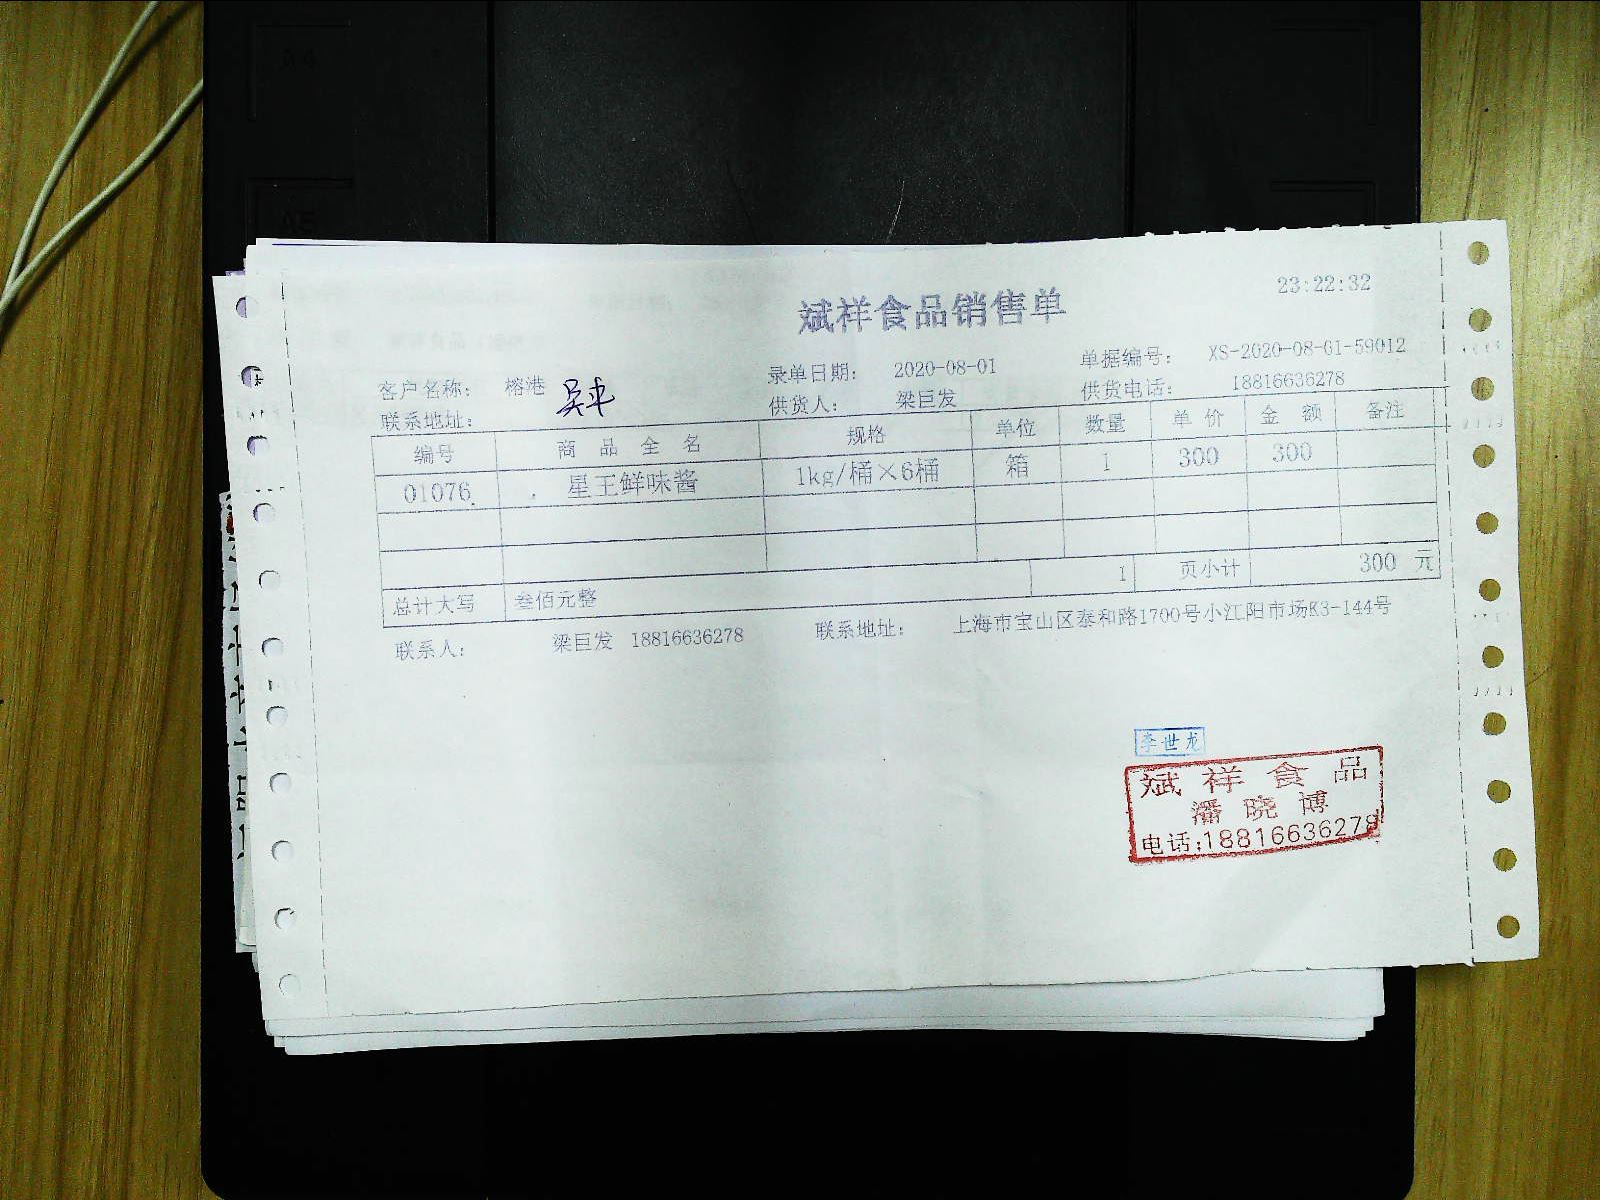 23:22:32
斌祥食品销售单
客户名称: 榕港 吴平 录单日期: 2020-08-01 单据编号: XS-2020-08-01-59012
联系地址: 供货人: 梁巨发 供货电话: 18816636278
编号 商品全名 规格 单位 数量 单价 金额 备注
01076 星王鲜味酱 1kg/桶×6桶 箱 1 300 300
1 页小计 300 元
总计大写 叁佰元整
联系人: 梁巨发 18816636278 联系地址: 上海市宝山区泰和路1700号小江阳市场K3-144号
李世龙
斌祥食品
潘晓博
电话:18816636278